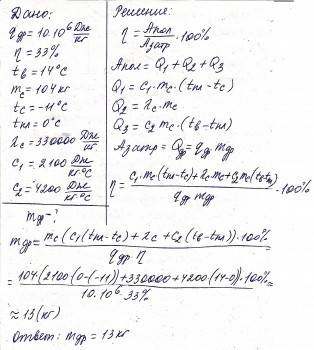 Дано:
qдр = 10·10⁶ Дж/кг
η = 33%
tв = 14°C
mc = 104 кг
tc = -11°C
tпл = 0°C
λc = 330000 Дж/кг
c₁ = 2100 Дж/кг·°C
c₂ = 4200 Дж/кг·°C
mдр - ?
Решение:
η = Aпол/Aзатр · 100%
Aпол = Q₁ + Q₂ + Q₃
Q₁ = c₁·mc·(tпл - tc)
Q₂ = λc·mc
Q₃ = c₂ mc·(tв - tпл)
Aзатр = Qдр = qдр mдр
η = c₁·mc·(tпл - tc) + λc mc + c₂ mc(tв - tпл)/qдр mдр · 100%
mдр = mc(c₁(tпл - tc) + λc + c₂(tв - tпл))·100%/qдр η =
= 104(2100(0-(-11)) + 330000 + 4200(14-0))·100%/10·10⁶·33% =
≈ 13 (кг)
Ответ: mдр = 13 кг